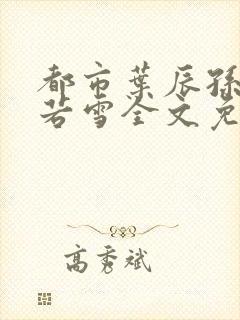 都市葉辰孫
若雪全文免
高秀斌